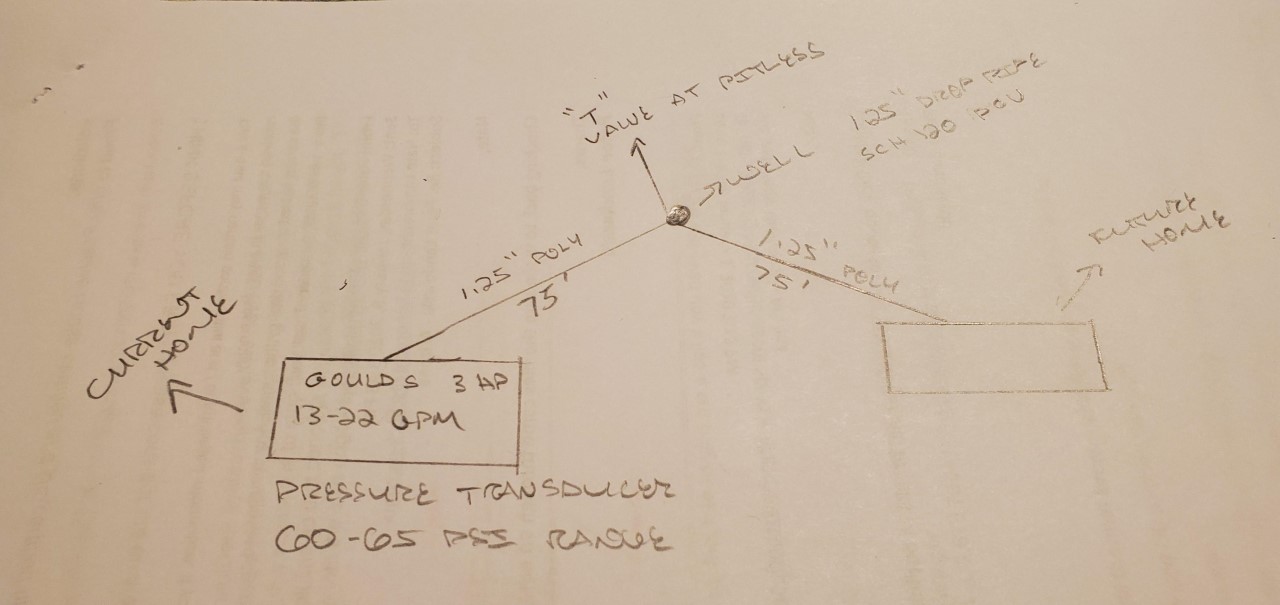 "T"
VALVE AT PITLESS
1.25" DROP PIPE
SCH 120 PCV
WELL
FUTURE
HOME
1.25" POLY
75'
1.25" POLY
75'
CURRENT
HOME
GOULDS 3 HP
13-22 GPM
PRESSURE TRANSDUCER
60-65 PSI RANGE